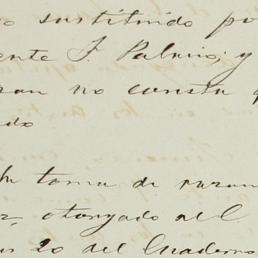 o sustituido po
ente J. Palmio; y
ran no consta q
do
toma de razon
otorgado al C
20 del Cuaderno